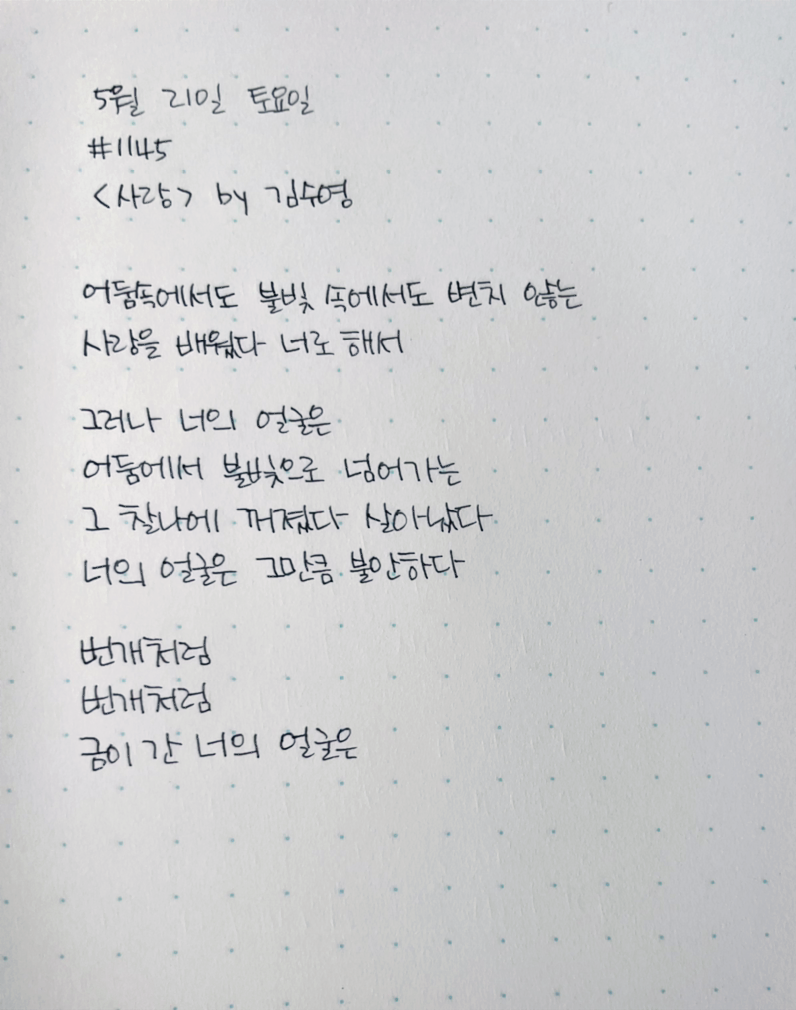 5월 21일 토요일
#1145
<사랑> by 김수영
어둠속에서도 불빛 속에서도 변치 않는
사랑을 배웠다 너로 해서
그러나 너의 얼굴은
어둠에서 불빛으로 넘어가는
그 찰나에 꺼졌다 살아났다
너의 얼굴은 그만큼 불안하다
번개처럼
번개처럼
금이 간 너의 얼굴은